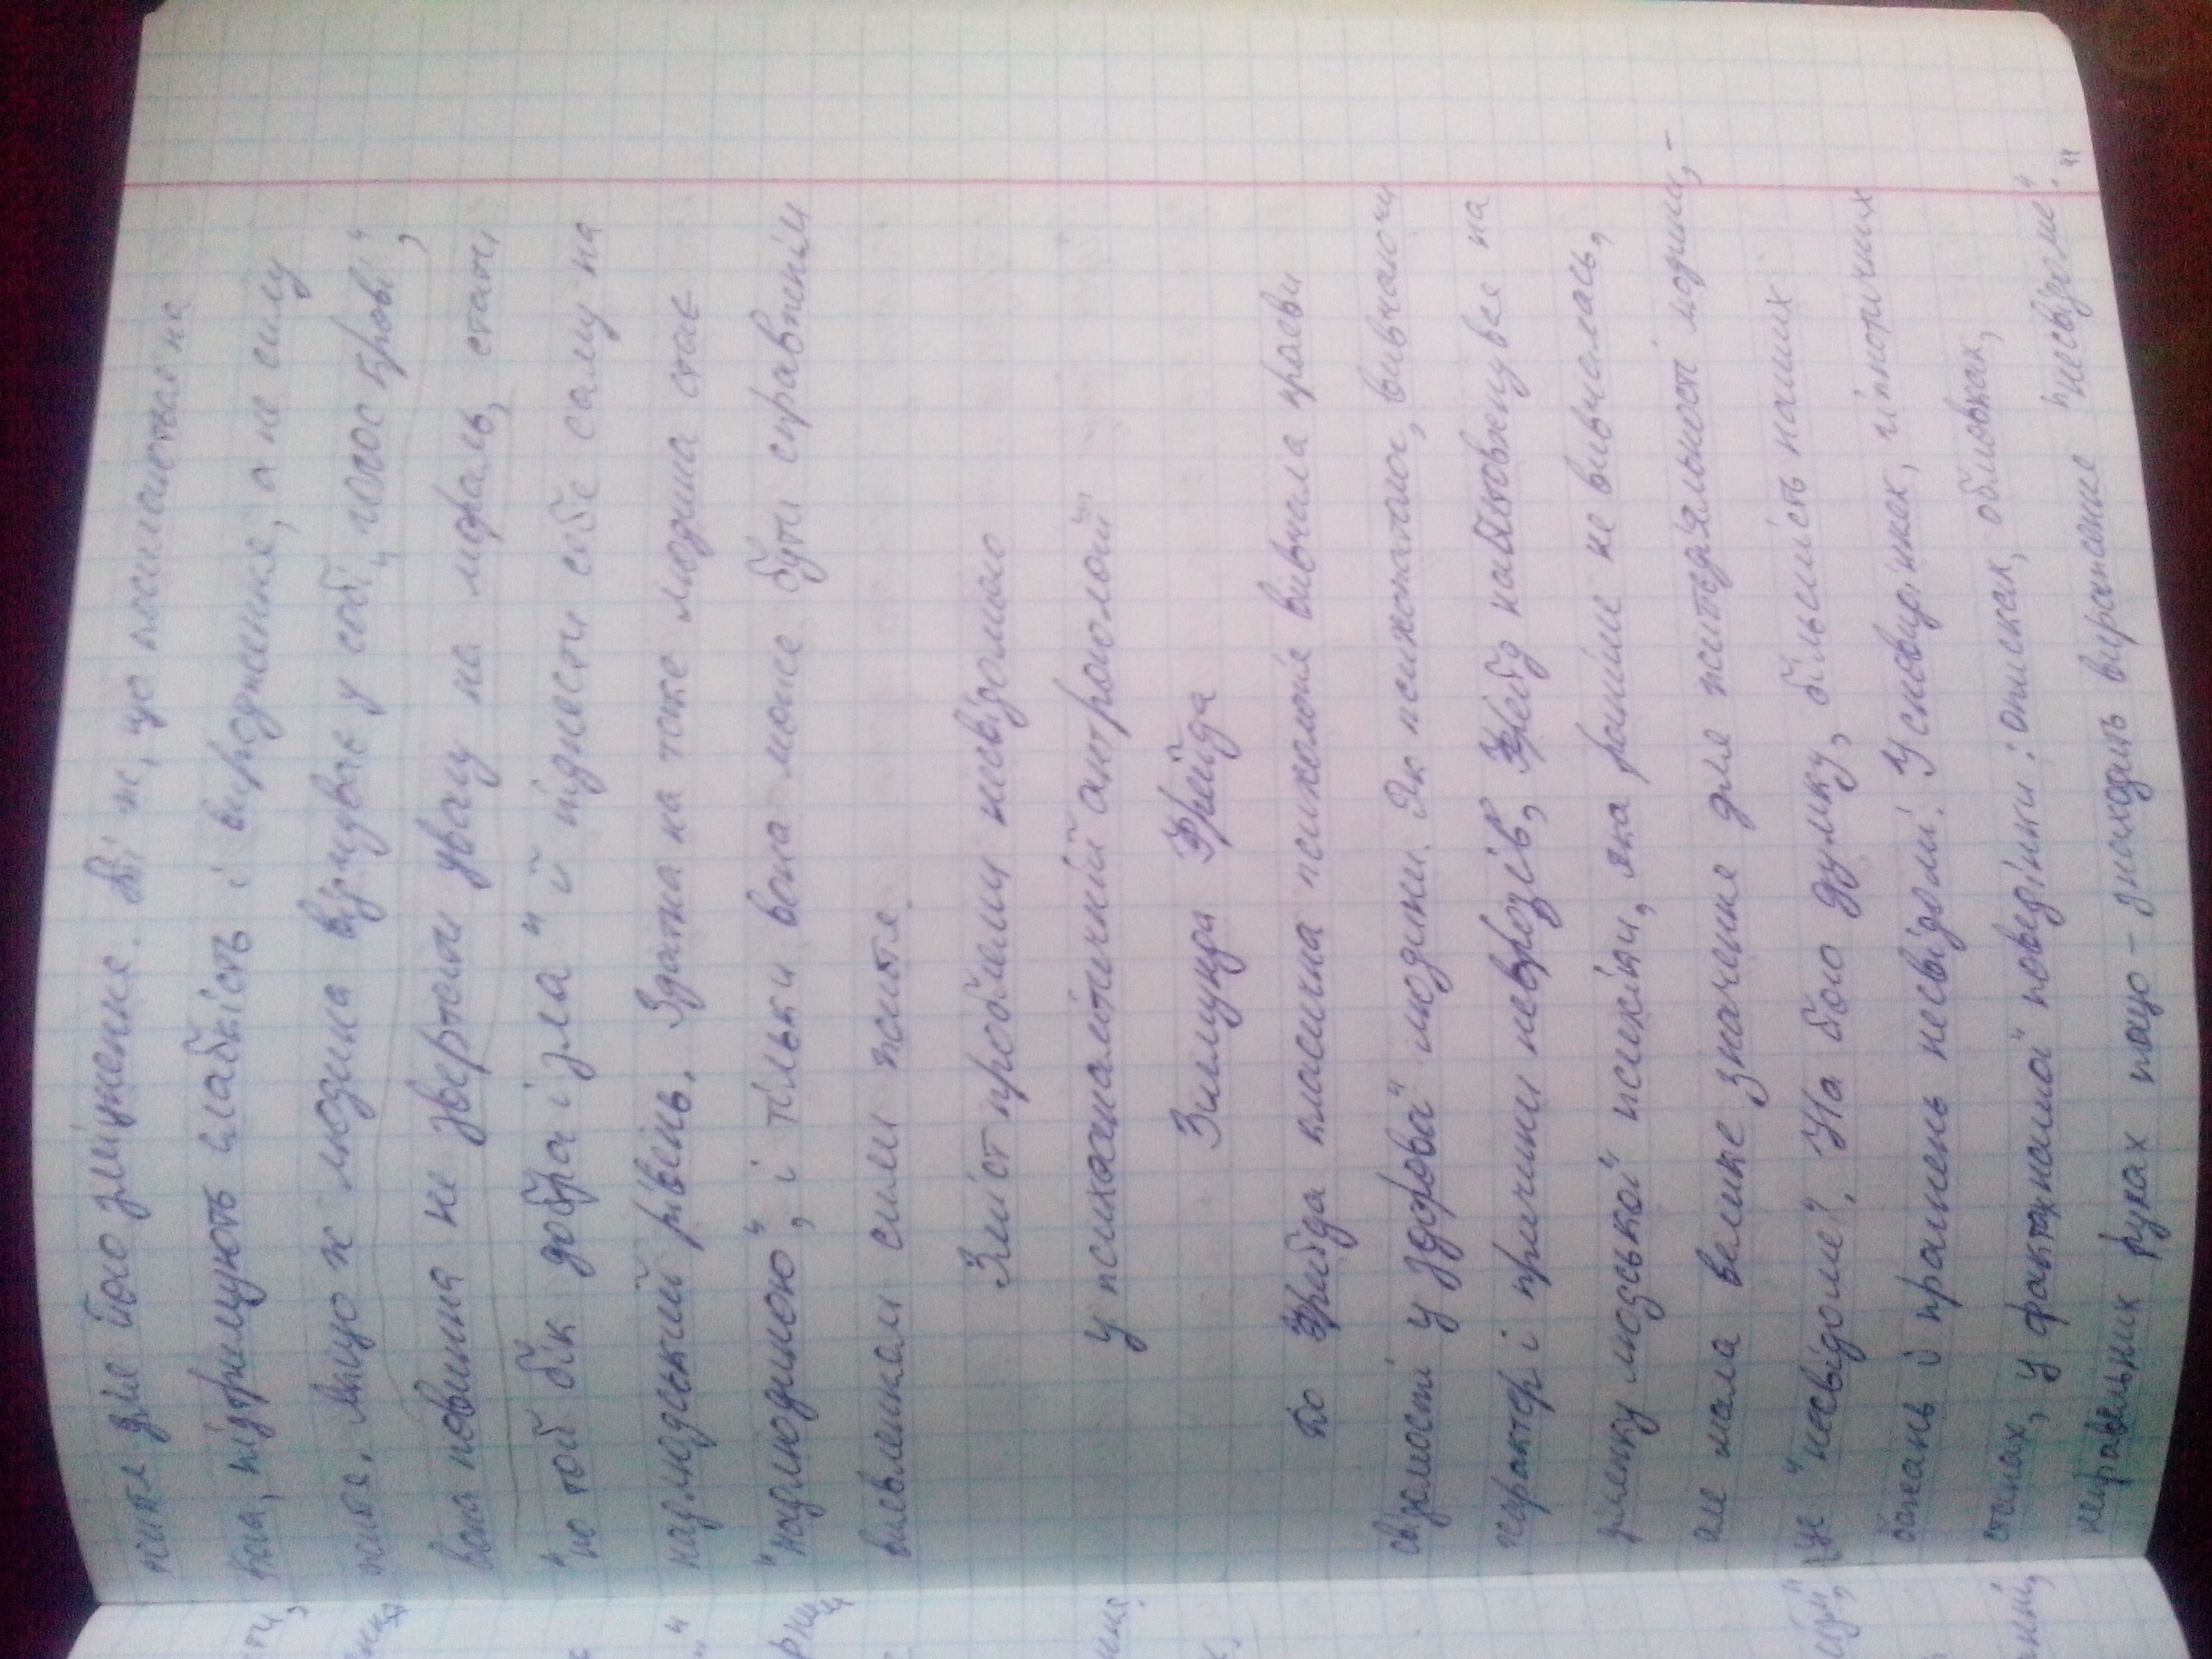 життя для його зміцнення. Ті ж, що посилаються на
Бога, підтримують слабкість і виродження, а не силу
життя. Якщо ж людина відчуває у собі „голос крові",
вона повинна не звертати увагу на мораль, стати
"по той бік добра і зла" й піднести себе саму на
надлюдський рівень. Здатна на таке людина стає
"надлюдиною", і тільки вона може бути справжнім
виявленням сили життя.
Зміст проблеми несвідомого
у психоаналітичній антропології
Зигмунда Фрейда
До Фрейда класична психологія вивчала прояви
свідомості у здорової людини. Як психопатолог, вивчаючи
характер і причини неврозів, Фрейд наштовхнувся на
ділянку людської психіки, яка раніше не вивчалась,
але мала велике значення для життєдіяльності людини, -
це "несвідоме". На його думку, більшість наших
бажань і прагнень несвідомі. У сновидіннях, гіпнотичних
станах, у фактах нашої поведінки: описках, обмовках,
неправельних рухах тощо - знаходить вираження "несвідоме".